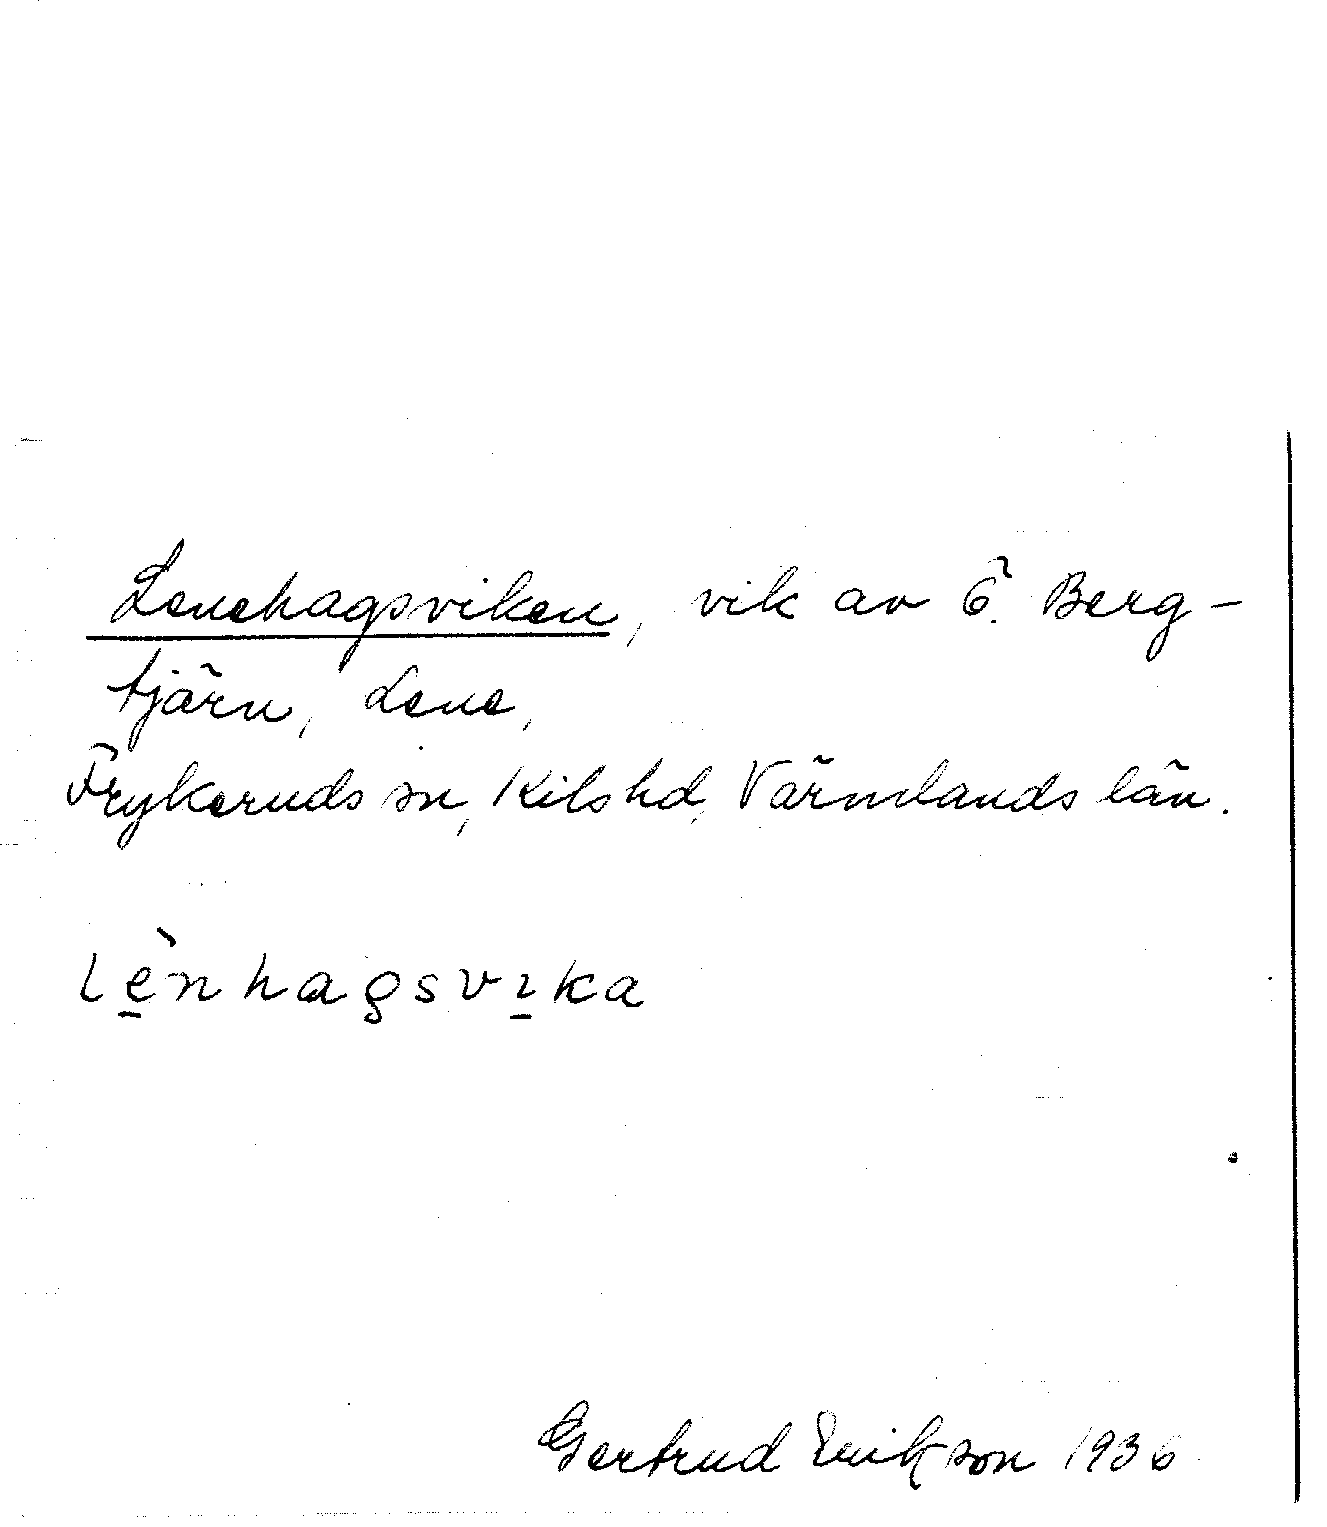 Lenehagsviken, vik av Ö. Berg-
tjärn, Lene,
Frykeruds sn, Kils hd, Värmlands län.
lènhagsvıka
Gertrud Erikson 1936